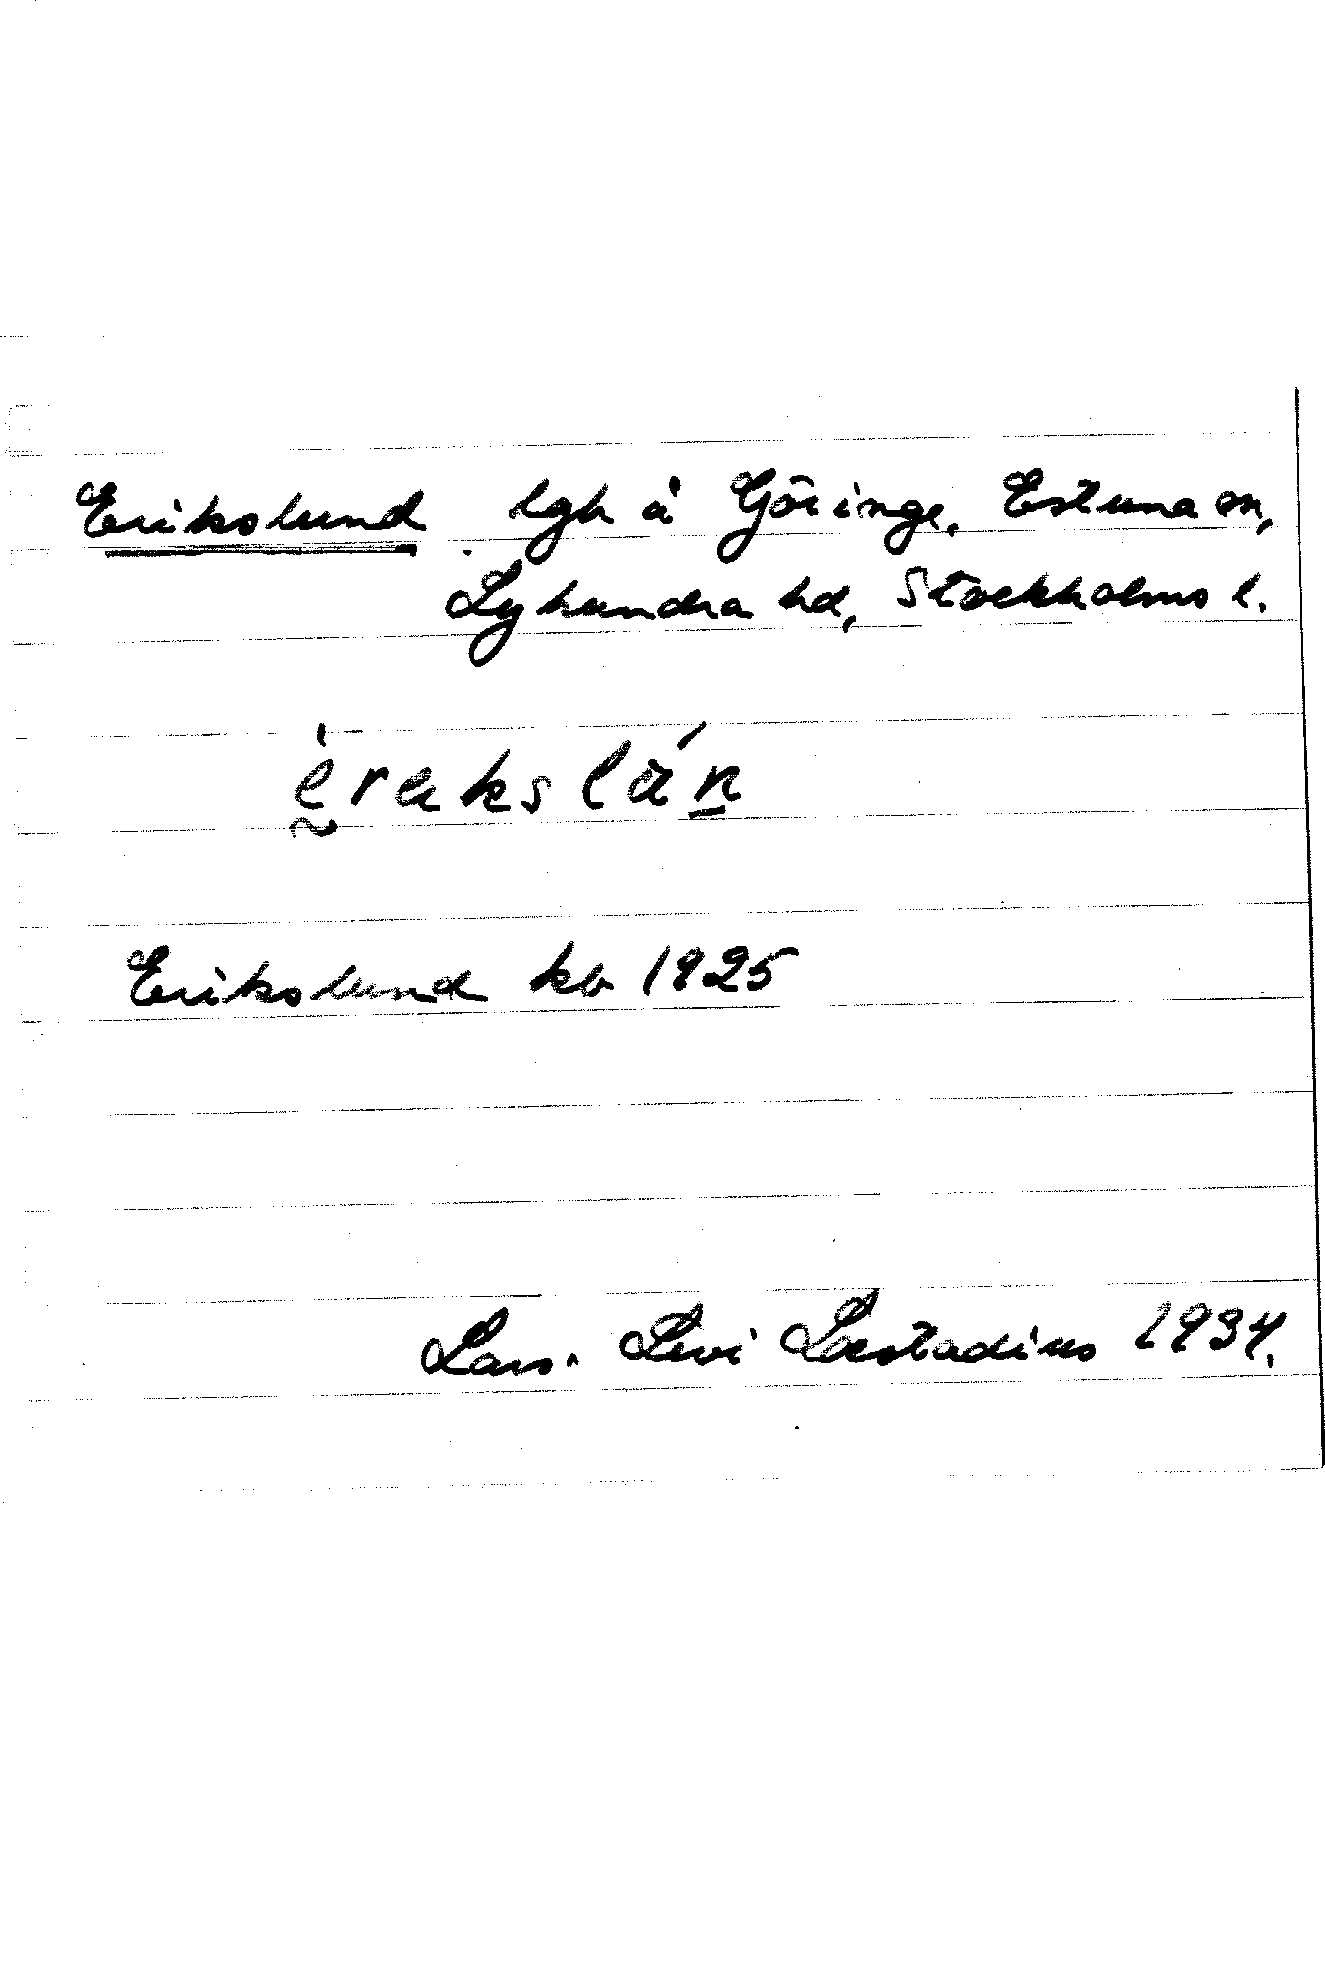 Erikslund lgh å Göringe, Estuna sn,
Lyhundra hd, Stockholms l.
Erikslund kb 1925
Lars. Levi Læstadius 1934.